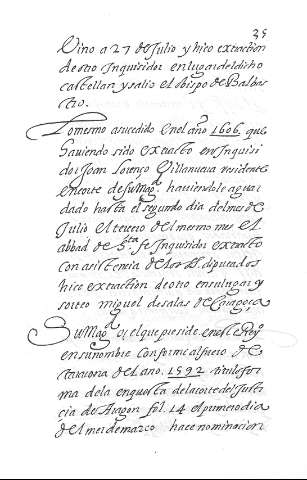 35
Vino a 27 de Julio y hico extraction
de otro Inquisidor en lugar del dicho
castellan y salio el obispo de Balbas
tro.
Lo mesmo a sucedido en el año 1606. que
haviendo sido extracto en Inquisi
dor Joan Lorenço Villanueva residente
en corte de su Magd. haviendole aguar
dado hasta el segundo dia del mes de
Julio el tercero del mesmo mes el
abbad de Sta. fe Inquisidor extracto
con asistencia de los SS. diputados
hico extraction de otro en su lugar y
sorteo miguel de salas de Çaragoça
Su Magd. o, el que preside en este Reyº
en su nombre conforme al fuero de
taraçona del ano. 1592 titulo for
ma de la enquesta de la corte del Justi
cia de Aragon fol. 14 el primero dia
del mes de março hace nominacion